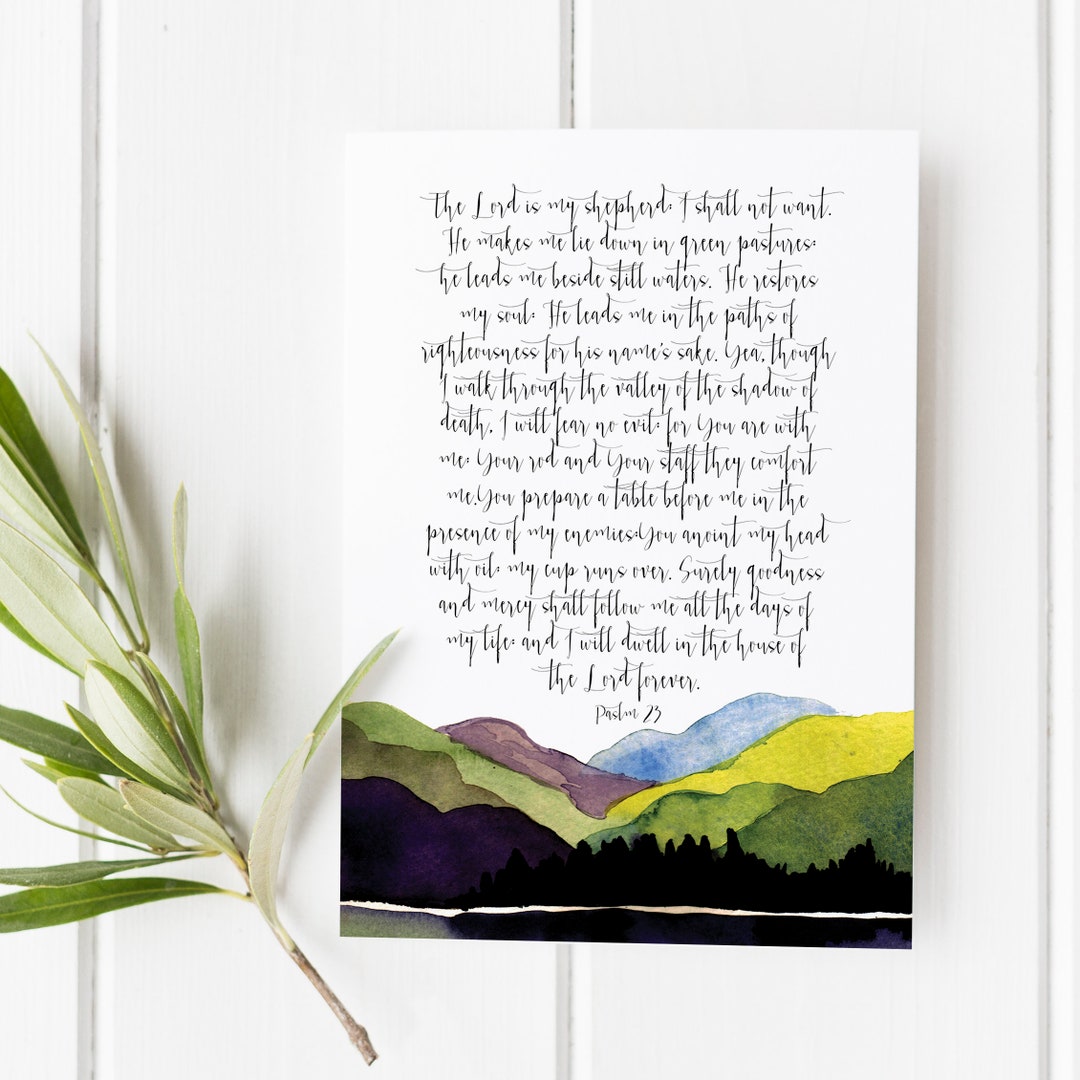 The Lord is my shepherd; I shall not want.
He makes me lie down in green pastures:
he leads me beside still waters. He restores
my soul: He leads me in the paths of
righteousness for his name's sake. Yea, though
I walk through the valley of the shadow of
death, I will fear no evil: for You are with
me; Your rod and Your staff they comfort
me.You prepare a table before me in the
presence of my enemies:You anoint my head
with oil; my cup runs over. Surely goodness
and mercy shall follow me all the days of
my life: and I will dwell in the house of
the Lord forever.
Paslm 23